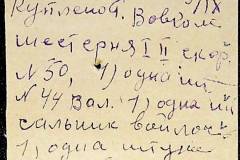 1/IX
Куплено т. Вовком
шестерня I II скор.
N 50, 1) одна шт
N 44 Вал. 1) одна шт
сальник войлоч
1) одна штука